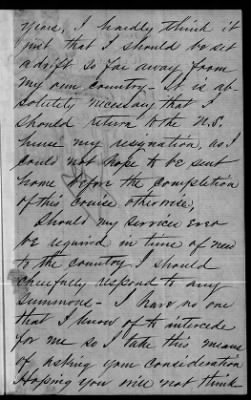 years, I hardly think it
just that I should be set
adrift so far away from
my own country - It is ab-
solutely necessary that I
should return to the U.S.
hence my resignation, as I
could not hope to be sent
home before the completion
of this cruise otherwise,
Should my services ever
be required in time of need
to the country I should
cheerfully respond to any
summons - I have no one
that I know of to intercede
for me so I take this means
of asking your consideration
Hoping you will not think